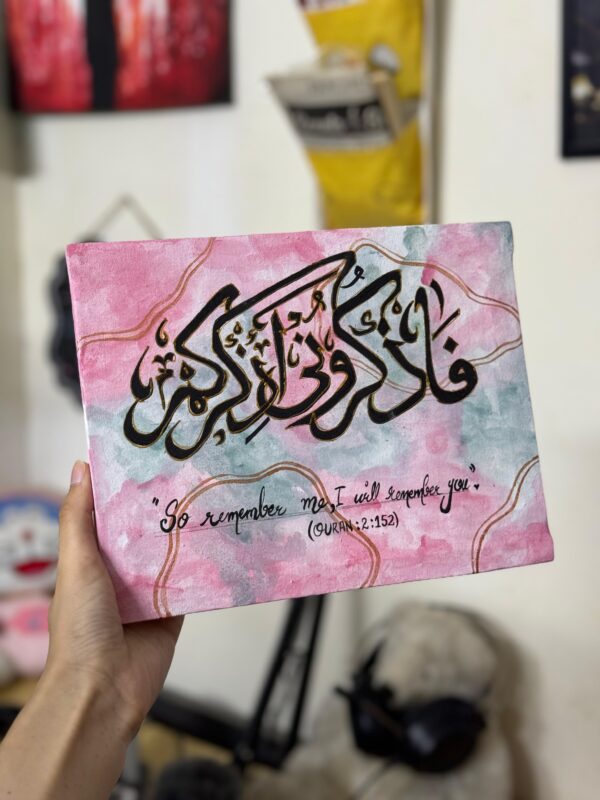 فَاذْكُرُونِي أَذْكُرْكُمْ
"So remember me, I will remember you".
(QURAN:2:152)